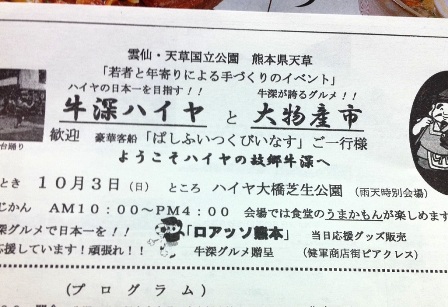 雲仙・天草国立公園 熊本県天草
「若者と年寄りによる手づくりのイベント」
ハイヤの日本一を目指す！！ 牛深が誇るグルメ！！
牛深ハイヤ と 大物産市
歓迎 豪華客船「ぱしふぃっくびいなす」ご一行様
ようこそハイヤの故郷牛深へ
台踊り
とき 10月3日（日） ところ ハイヤ大橋芝生公園 （雨天時別会場）
じかん AM10：00～PM4：00 会場では食堂のうまかもんが楽しめます
深グルメで日本一を！！ 「ロアッソ熊本」 当日応援グッズ販売
応援しています！頑張れ！！ 牛深グルメ贈呈 （健軍商店街ピアクレス）
（プログラム）